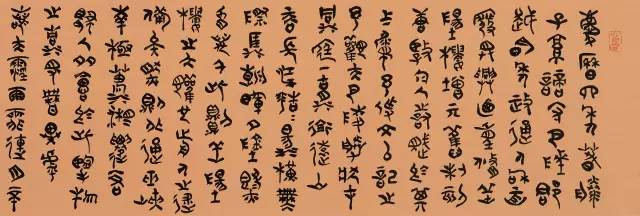 慶曆四年春滕
子京謫守巴陵郡
越明年政通人和百
廢具興乃重修岳
陽樓增其舊制刻
唐賢今人詩賦於其
上屬予作文以記之
予觀夫巴陵勝狀在
洞庭一湖銜遠山
吞長江浩浩湯湯橫無
際涯朝暉夕陰氣
象萬千此則岳陽
樓之大觀也前人之述
備矣然則北通巫峽
南極瀟湘遷客
騷人多會於此覽物
之情得無異乎
若夫霪雨霏霏連月不